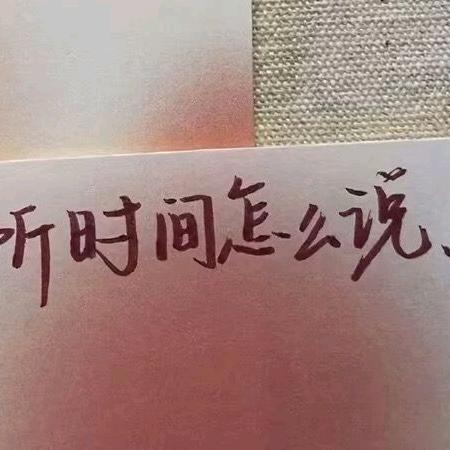 听时间怎么说、